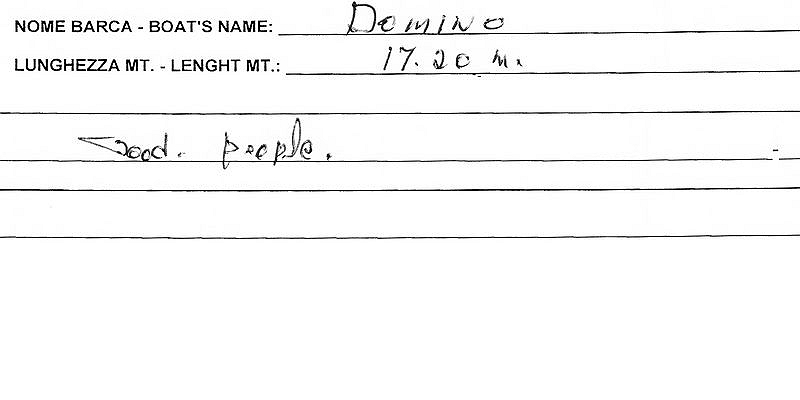 NOME BARCA - BOAT'S NAME: Domino
LUNGHEZZA MT. - LENGHT MT.: 17.20 m.
Good. people.